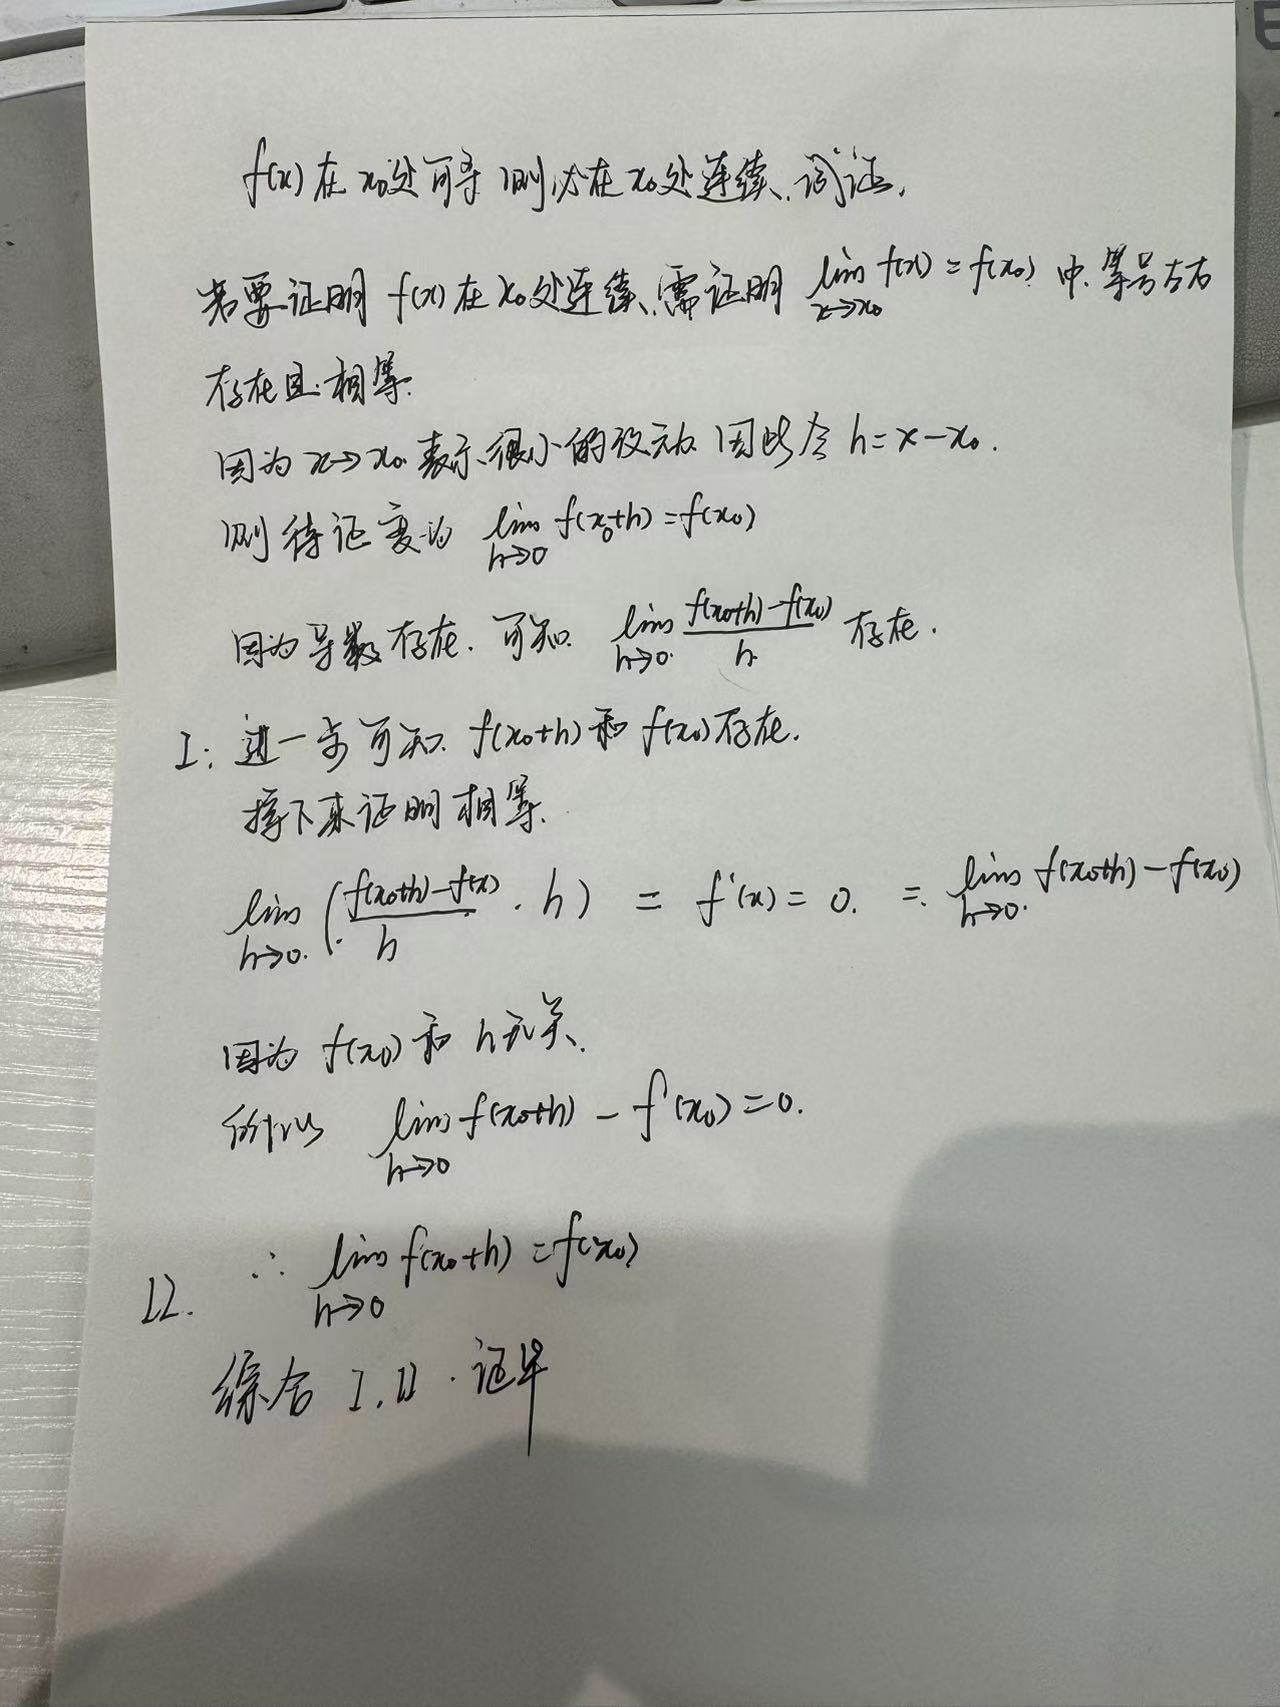 f(x)在x₀处可导 则必在x₀处连续、试证.
若要证明 f(x)在x₀处连续、需证明 lim x→x₀ f(x) = f(x₀) 中. 等号左右
存在且相等.
因为 x→x₀ 表示很小的改动 因此令 h = x - x₀.
则待证变为 lim h→0 f(x₀+h) = f(x₀)
因为导数存在. 可知. lim h→0 (f(x₀+h) - f(x₀))/h 存在.
I: 进一步可知. f(x₀+h)和 f(x₀)存在.
接下来证明相等.
lim h→0. ((f(x₀+h) - f(x))/h · h) = f'(x) = 0. = lim h→0. f(x₀+h) - f(x₀)
因为 f(x₀)和 h无关.
所以 lim h→0 f(x₀+h) - f(x₀) = 0.
II. ∴ lim h→0 f(x₀+h) = f(x₀)
综合 I. II. 证毕